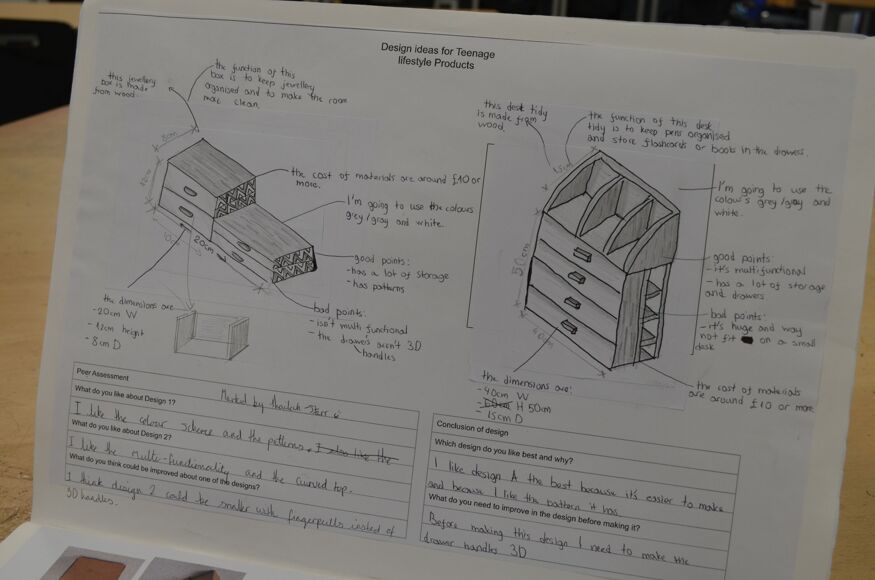 Design ideas for Teenage
lifestyle Products
this jewellery
box is made
from wood.
the function of this
box is to keep jewellery
organised and to make the room
more clean.
8cm
20cm
the cost of materials are around £10 or
more.
I'm going to use the colours
grey/gray and white.
good points:
- has a lot of storage
- has patterns
bad points:
- isn't multi functional
- the drawers aren't 3D
handles
the dimensions are
- 20cm W
- 12cm height
- 8cm D
this desk tidy
is made from
wood.
the function of this desk
tidy is to keep pens organised
and store flashcards or books in the drawers.
15cm
50cm
40cm
I'm going to use the
colour's grey/gray and
white.
good points:
- it's multifunctional
- has a lot of storage
and drawers
bad points:
- it's huge and way
not fit on a small
desk
the cost of materials
are around £10 or more
the dimensions are:
- 40cm W
- H 50cm
- 15cm D
Peer Assessment
Marked by
What do you like about Design 1?
I like the colour scheme and the patterns. I also like the
What do you like about Design 2?
I like the multi-functionality and the curved top.
What do you think could be improved about one of the designs?
I think design 2 could be smaller with fingerpulls instead of
3D handles.
Conclusion of design
Which design do you like best and why?
I like design A the best because it's easier to make
and because I like the pattern it has.
What do you need to improve in the design before making it?
Before making this design I need to make the
drawer handles 3D